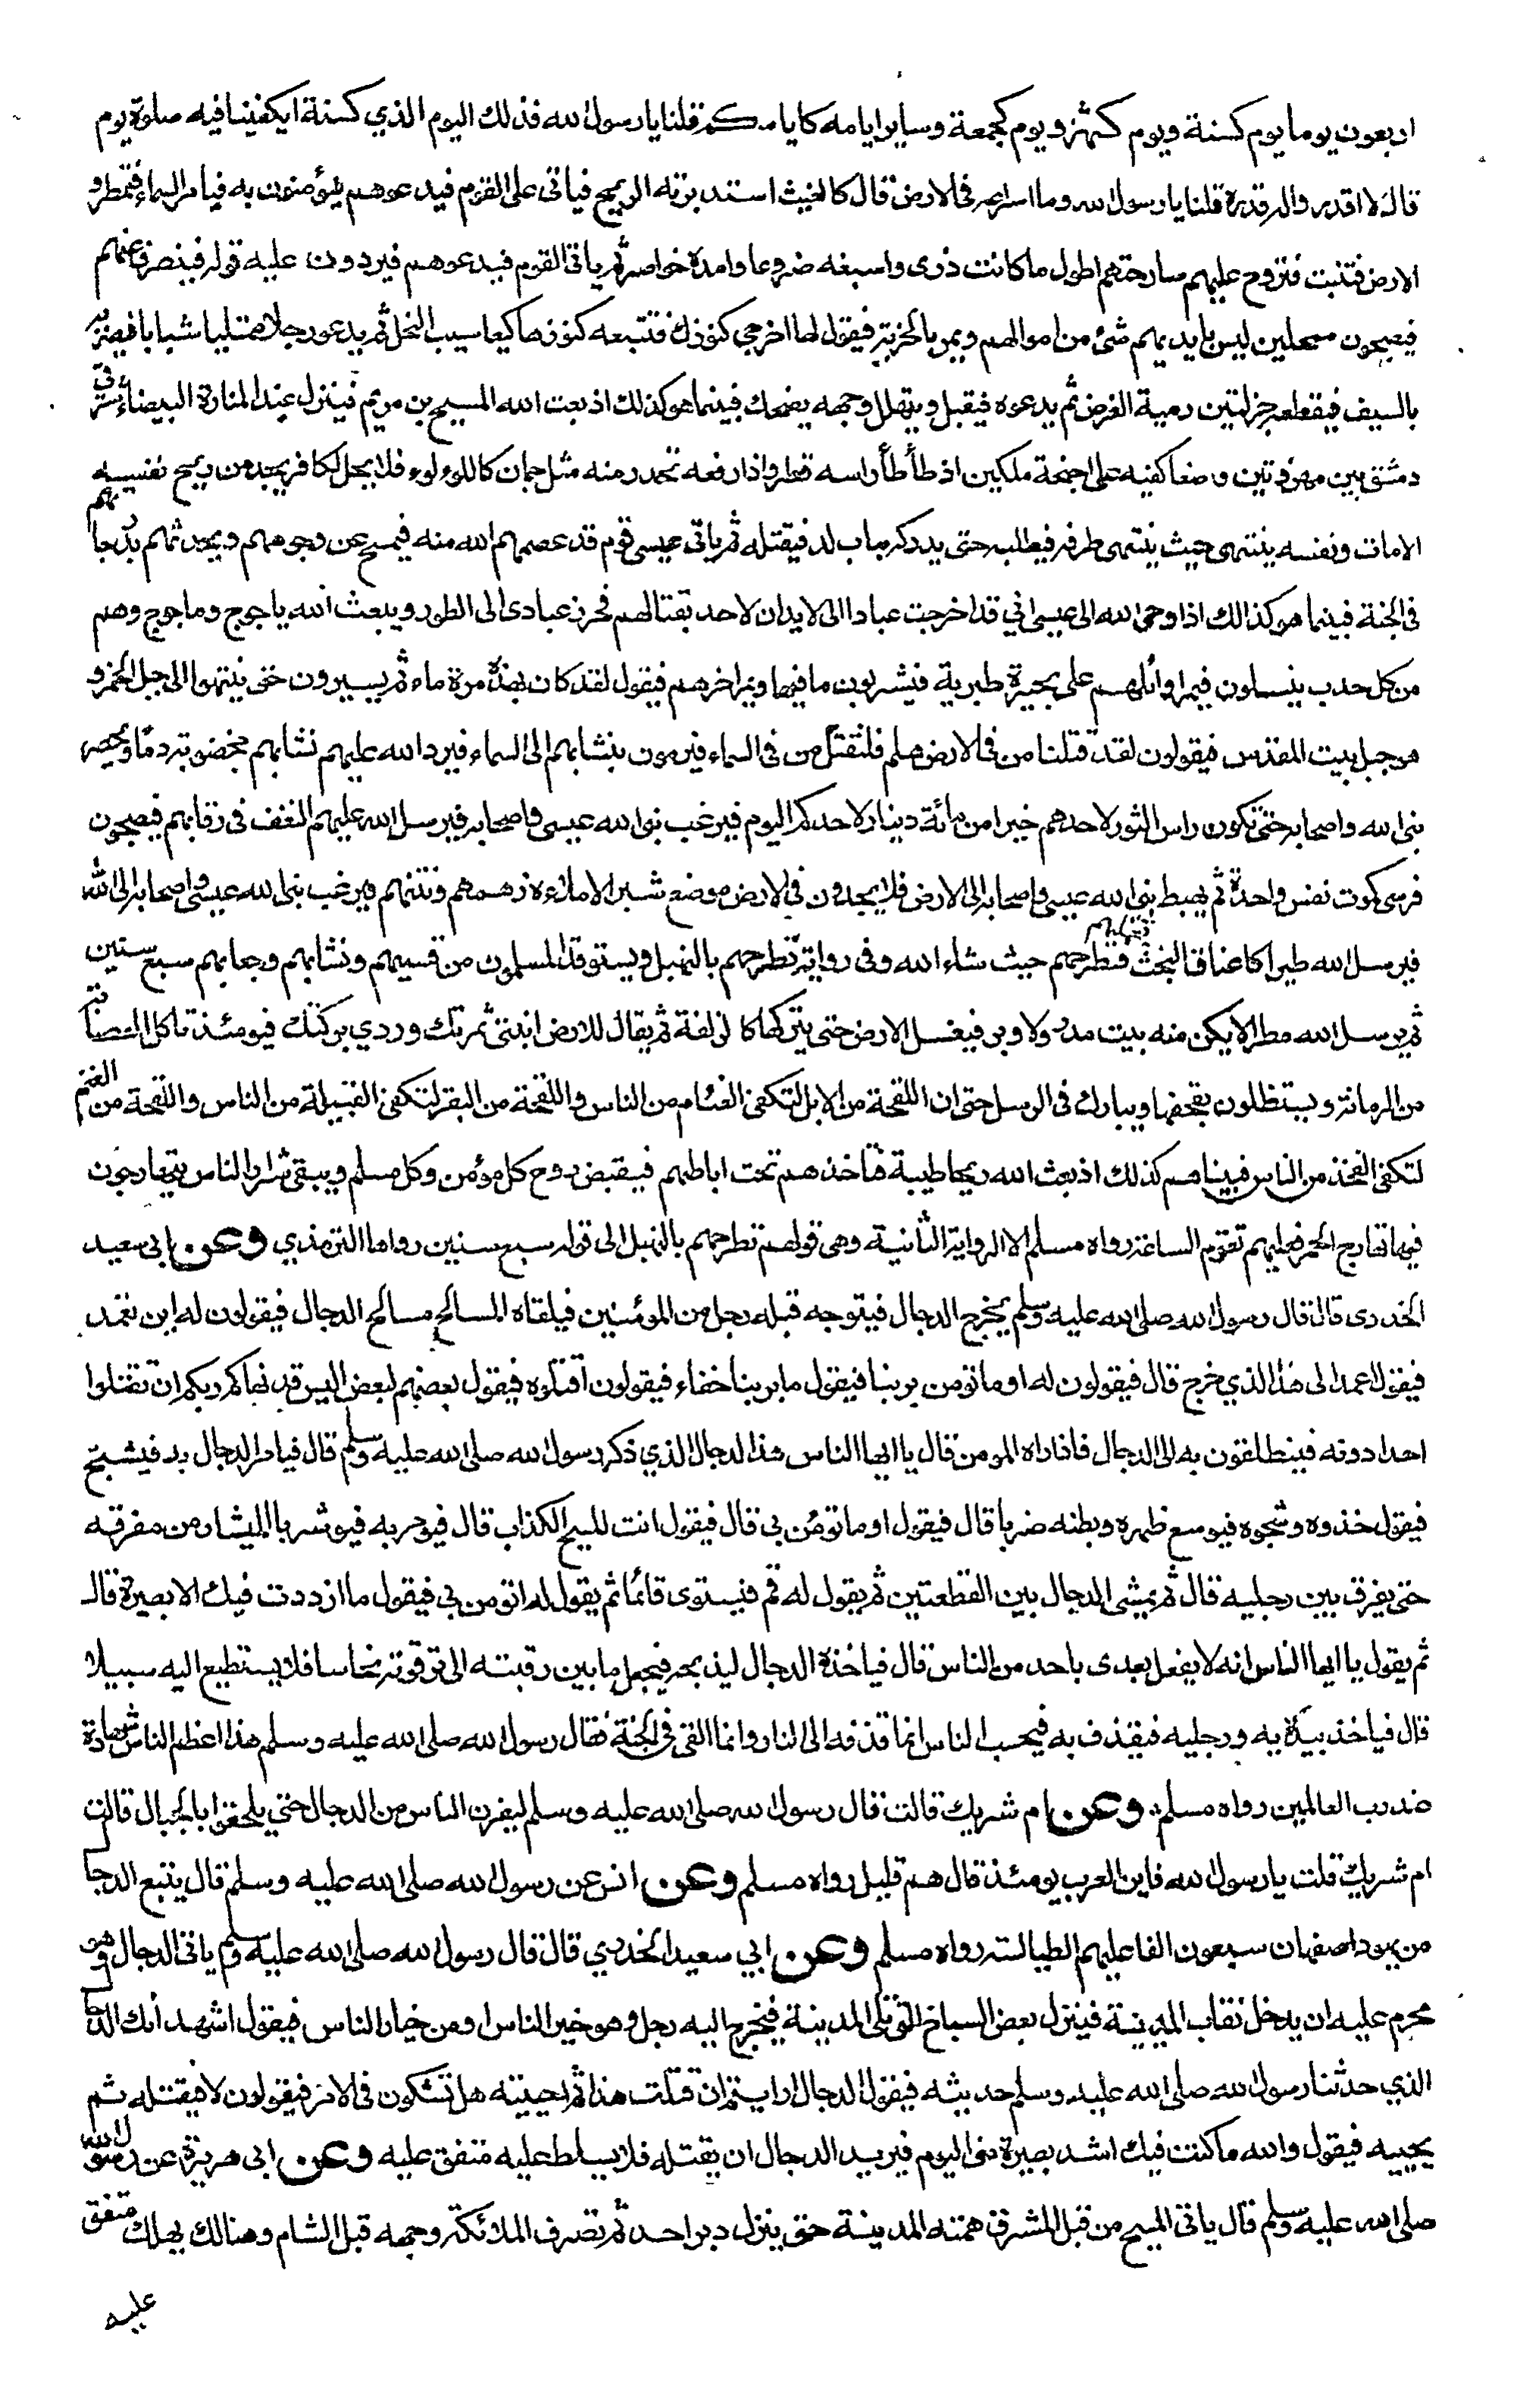 اربعون يوما يوم كسنة ويوم كشهر ويوم كجمعة وساير ايامه كايامكم قلنا يا رسول الله فذلك اليوم الذي كسنة ايكفينا فيه صلوة يوم
قال لا اقدروا له قدره قلنا يا رسول الله وما اسراعه فى الارض قال كالغيث استدبرته الريح فياتى على القوم فيدعوهم فيؤمنون به فيامر السماء فتمطر و
الارض فتنبت فتروح عليهم سارحتهم اطول ما كانت ذرى واسبغه ضروعا وامده خواصر ثم ياتى القوم فيدعوهم فيردون عليه قوله فينصرف عنهم
فيصبحون ممحلين ليس بايديهم شئ من اموالهم ويمر بالخربة فيقول لها اخرجي كنوزك فتتبعه كنوزها كيعاسيب النحل ثم يدعو رجلا ممتليا شبابا فيضربه
بالسيف فيقطعه جزلتين رمية الغرض ثم يدعوه فيقبل ويتهلل وجهه يضحك فبينما هو كذلك اذ بعث الله المسيح بن مريم فينزل عند المنارة البيضاء شرقى
دمشق بين مهرودتين واضعا كفيه على اجنحة ملكين اذ طأطأ راسه قطر واذا رفعه تحدر منه مثل جمان كاللوء لوء فلا يحل لكافر يجد من ريح نفسه
الامات ونفسه ينتهى حيث ينتهى طرفه فيطلبه حتى يدركه بباب لد فيقتله ثم ياتى عيسى قوم قد عصمهم الله منه فيمسح عن وجوههم ويحدثهم بدرجاتهم
فى الجنة فبينما هو كذالك اذ اوحى الله الى عيسى اني قد اخرجت عبادا الى لا يدان لاحد بقتالهم فحرز عبادى الى الطور ويبعث الله ياجوج وماجوج وهم
من كل حدب ينسلون فيمر اوائلهم على بحيرة طبرية فيشربون ما فيها ويمر اخرهم فيقول لقد كان بهذه مرة ماء ثم يسيرون حتى ينتهوا الى جبل الخمر و
هو جبل بيت المقدس فيقولون لقد قتلنا من فى الارض هلم فلنقتل من فى السماء فيرمون بنشابهم الى السماء فيرد الله عليهم نشابهم مخضوبة دما ويحصر
نبى الله واصحابه حتى تكون راس الثور لاحدهم خيرا من مائة دينار لاحدكم اليوم فيرغب نبى الله عيسى واصحابه فيرسل الله عليهم النغف فى رقابهم فيصبحون
فرسى كموت نفس واحدة ثم يهبط نبى الله عيسى واصحابه الى الارض فلا يجدون فى الارض موضع شبر الا ملاءه زهمهم ونتنهم فيرغب نبى الله عيسى واصحابه الى الله
فيرسل الله طيرا كاعناق البخت فتحملهم فتطرحهم حيث شاء الله وفى رواية تطرحهم بالنهبل ويستوقد المسلمون من قسيهم ونشابهم وجعابهم سبع سنين
ثم يرسل الله مطرا لا يكن منه بيت مدر ولا وبر فيغسل الارض حتى يتركها كالزلفة ثم يقال للارض انبتى ثمرتك وردي بركتك فيومئذ تاكل العصابة
من الرمانة ويستظلون بقحفها ويبارك فى الرسل حتى ان اللقحة من الابل لتكفى الفئام من الناس واللقحة من البقر لتكفى القبيلة من الناس واللقحة من الغنم
لتكفى الفخذ من الناس فبينا هم كذلك اذ بعث الله ريحا طيبة فتاخذهم تحت اباطهم فيقبض روح كل مؤمن وكل مسلم ويبقى شرار الناس يتهارجون
فيها تهارج الحمر فعليهم تقوم الساعة رواه مسلم الا الرواية الثانية وهى قولهم تطرحهم بالنهبل الى قوله سبع سنين رواها الترمذي وعن ابى سعيد
الخدرى قال قال رسول الله صلى الله عليه وسلم يخرج الدجال فيتوجه قبله رجل من المؤمنين فيلقاه المسالح مسالح الدجال فيقولون له اين تعمد
فيقول اعمد الى هذا الذي خرج قال فيقولون له او ما تومن بربنا فيقول ما بربنا خفاء فيقولون اقتلوه فيقول بعضهم لبعض اليس قد نهاكم ربكم ان تقتلوا
احدا دونه فينطلقون به الى الدجال فاذا راه المومن قال يا ايها الناس هذا الدجال الذي ذكر رسول الله صلى الله عليه وسلم قال فيامر الدجال به فيشبح
فيقول خذوه وشجوه فيوسع ظهره وبطنه ضربا قال فيقول او ما تومن بي قال فيقول انت المسيح الكذاب قال فيومر به فيوشر بالميشار من مفرقه
حتى يفرق بين رجليه قال ثم يمشى الدجال بين القطعتين ثم يقول له قم فيستوى قائما ثم يقول له اتومن بي فيقول ما ازددت فيك الا بصيرة قال
ثم يقول يا ايها الناس انه لا يفعل بعدى باحد من الناس قال فياخذه الدجال ليذبحه فيجعل ما بين رقبته الى ترقوته نحاسا فلا يستطيع اليه سبيلا
قال فياخذ بيديه ورجليه فيقذف به فيحسب الناس انما قذفه الى النار وانما القى فى الجنة فقال رسول الله صلى الله عليه وسلم هذا اعظم الناس شهادة
عند رب العالمين رواه مسلم وعن ام شريك قالت قال رسول الله صلى الله عليه وسلم ليفرن الناس من الدجال حتى يلحقوا بالجبال قالت
ام شريك قلت يا رسول الله فاين العرب يومئذ قال هم قليل رواه مسلم وعن انس عن رسول الله صلى الله عليه وسلم قال يتبع الدجال
من يهود اصفهان سبعون الفا عليهم الطيالسة رواه مسلم وعن ابي سعيد الخدري قال قال رسول الله صلى الله عليه وسلم ياتى الدجال وهو
محرم عليه ان يدخل نقاب المدينة فينزل بعض السباخ التى تلى المدينة فيخرج اليه رجل وهو خير الناس او من خيار الناس فيقول اشهد انك الدجال
الذي حدثنا رسول الله صلى الله عليه وسلم حديثه فيقول الدجال ارايتم ان قتلت هذا ثم احييته هل تشكون فى الامر فيقولون لا فيقتله ثم
يحييه فيقول والله ما كنت فيك اشد بصيرة منى اليوم فيريد الدجال ان يقتله فلا يسلط عليه متفق عليه وعن ابى هريرة عن رسول الله
صلى الله عليه وسلم قال ياتى المسيح من قبل المشرق همته المدينة حتى ينزل دبر احد ثم تصرف الملائكة وجهه قبل الشام وهنالك يهلك متفق
عليه